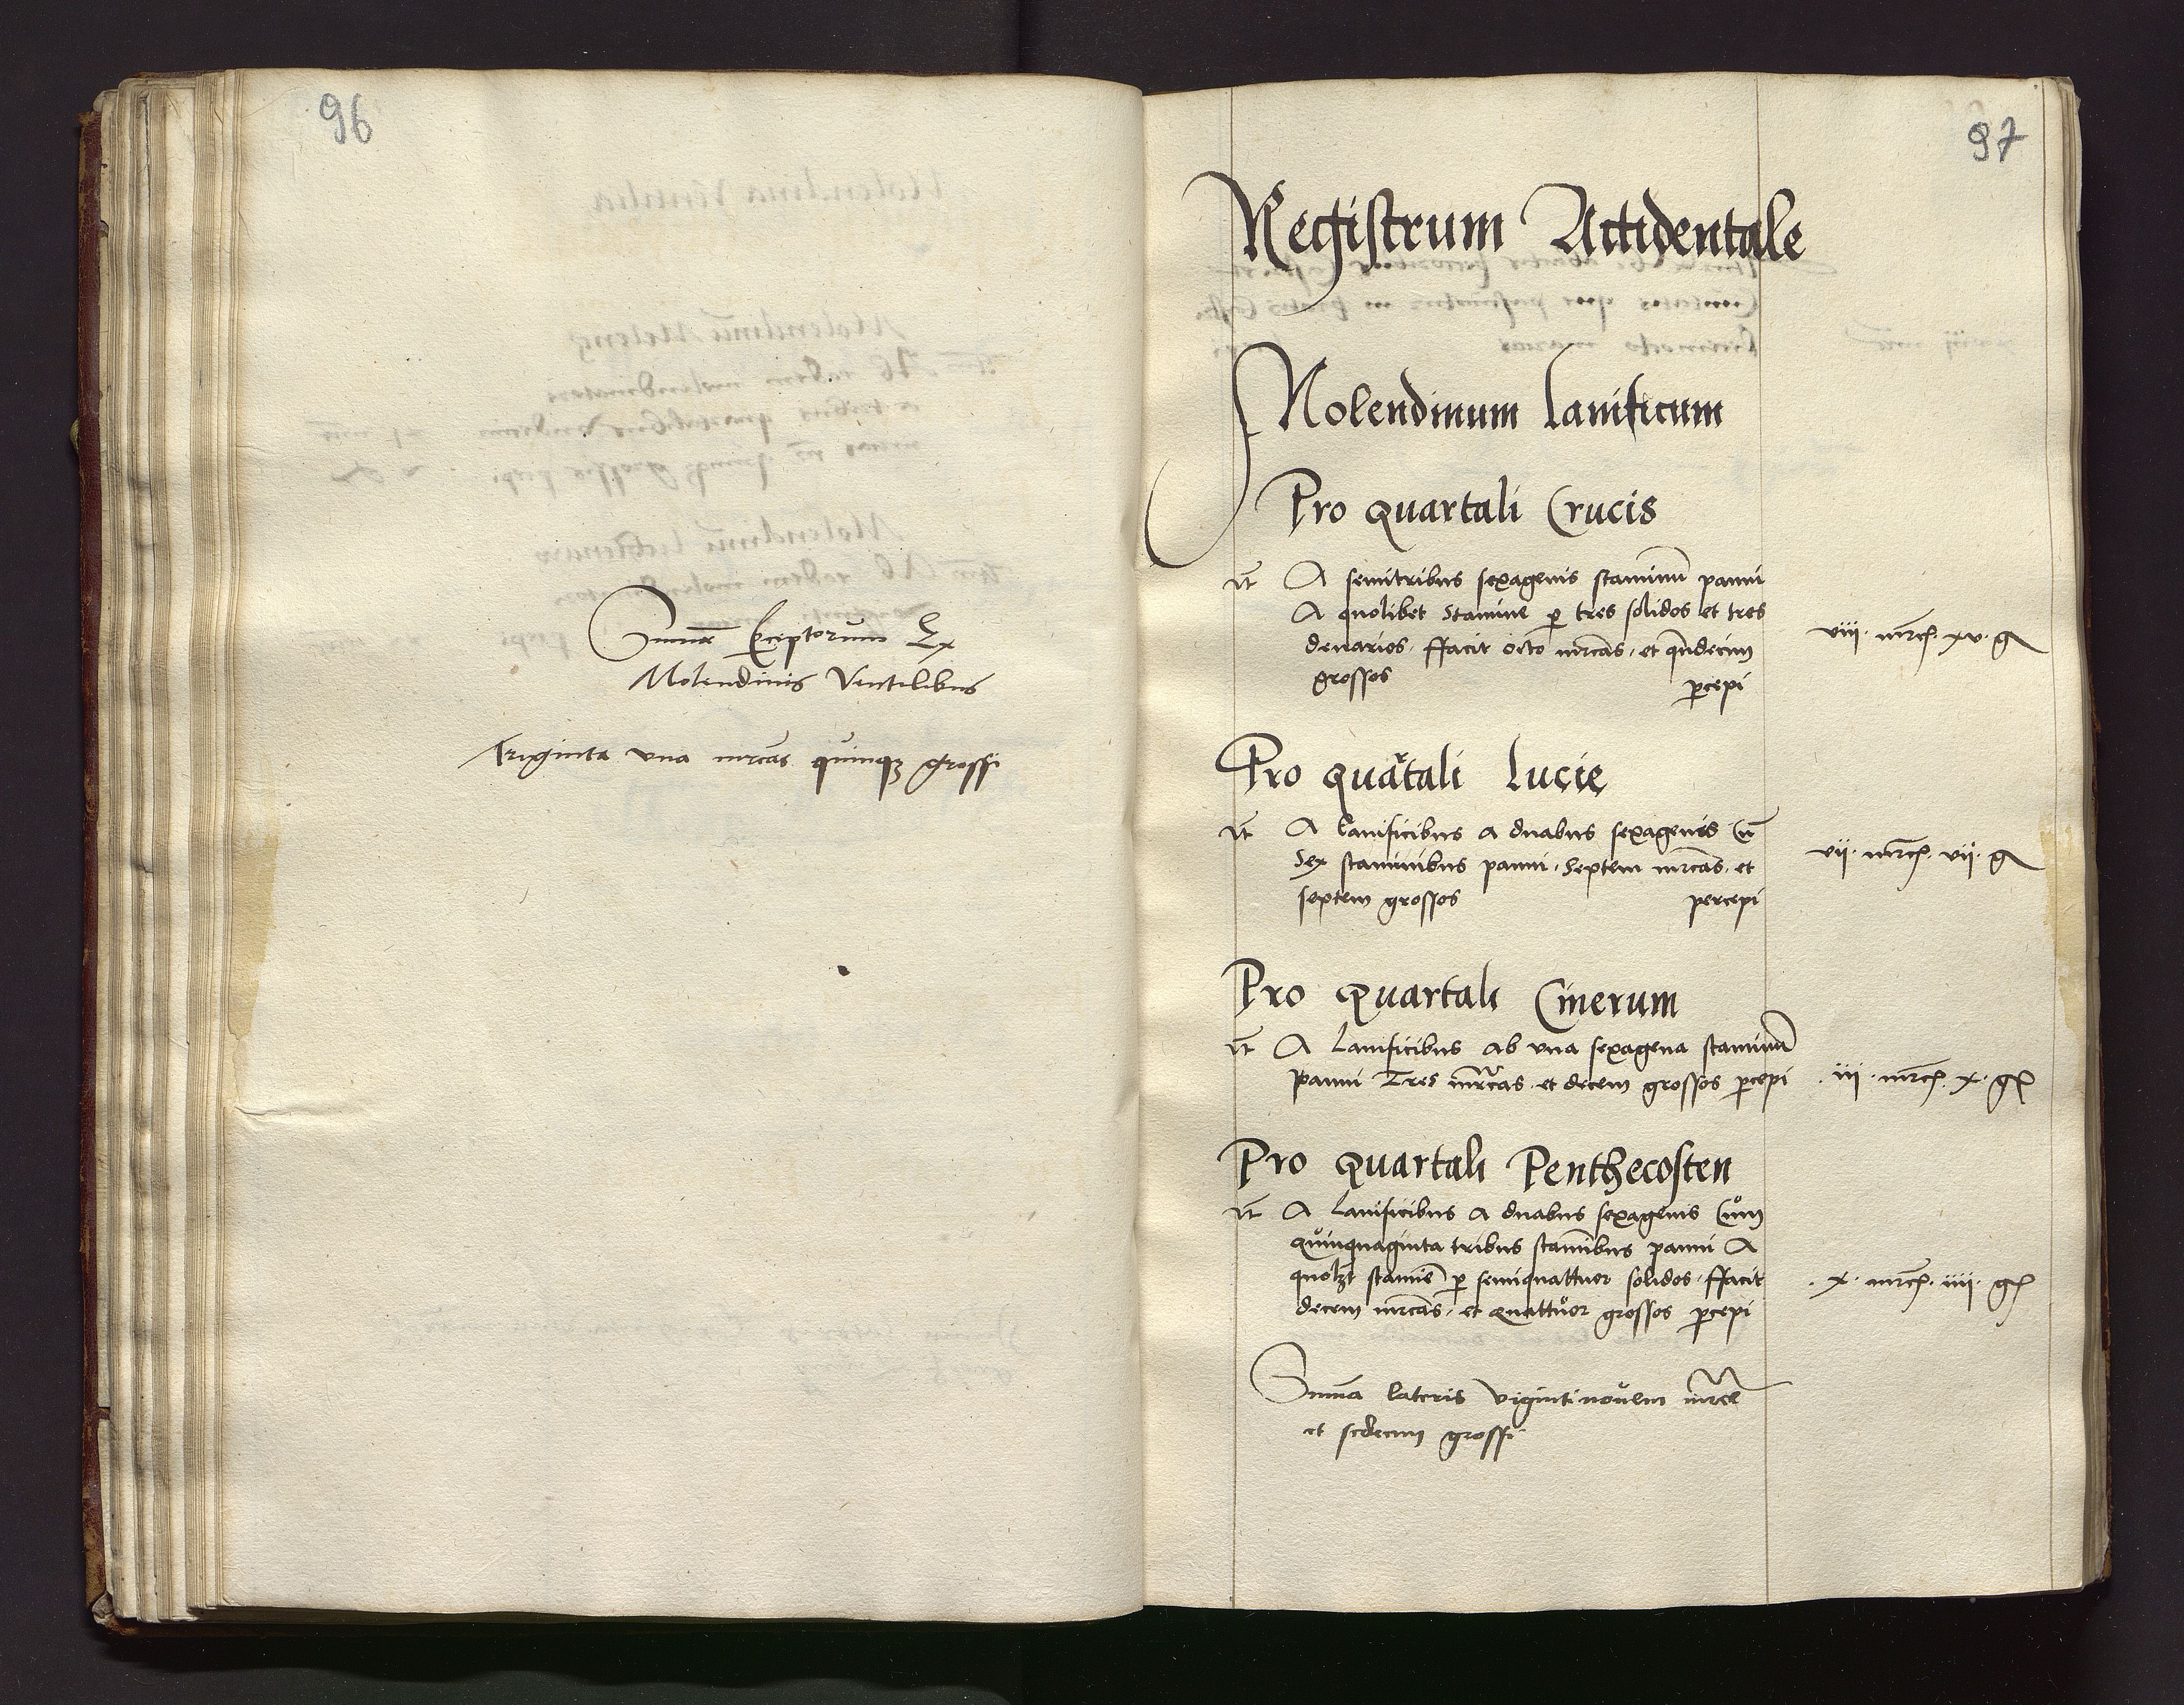 96
Sum̄a Exceptorum Ex
Molendinis Ventilibus
Triginta una mrcas quinqz grossi
97
Registrum Accidentale
Molendinum Lanificum
Pro quartali Crucis
It A semitribus sexagenis staminū panni
A quolibet Stamine p tres solidos et tres
denarios, ffacit octo mrcas, et qndecim
grossos pcepi
viii mrc xv g
Pro quartali Lucie
It A lanificibus a duabus sexagenis Cū
Sex staminibus panni, Septem mrcas, et
septem grossos percepi
vii mrc vii g
Pro quartali Cinerum
It A Lanificibus ab una sexagena staminū
panni Tres mrcas et decem grossos pcepi
iii mrc x g
Pro quartali Penthecosten
It A Lanificibus a duabus sexagenis Cum
quinquaginta tribus stamībus panni A
quolzt stamīe p semiquattuor solidos, ffacit
decem mrcas, et quattuor grossos pcepi
x mrc iiii g
Sum̄a lateris viginti novem mrce
et sedecim grossi